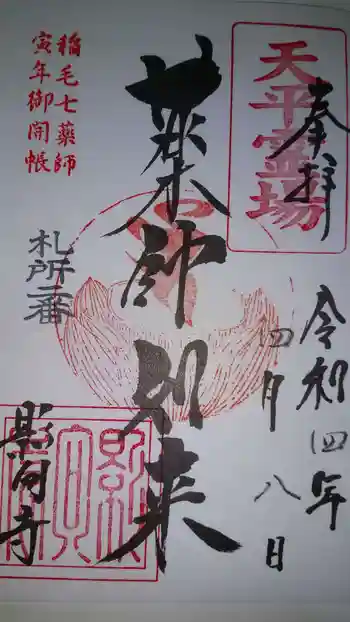 天平霊場
奉拝
令和四年
四月八日
薬師如来
稲毛七薬師
寅年御開帳
札所二番
影向寺